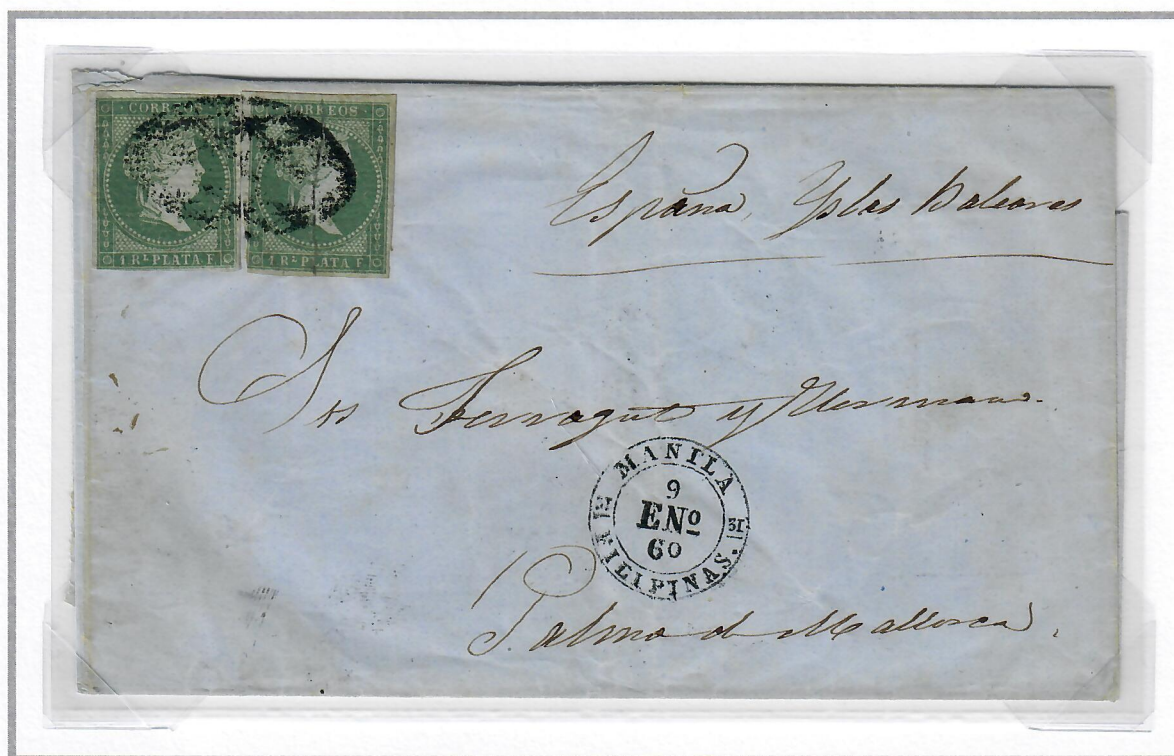 CORREOS
1 RL PLATA F.
CORREOS
1 RL PLATA F.
España, Yslas Baleares
Srs Ferragut y Hermano.
MANILA
9
ENº
60
31
FILIPINAS.
Palma de Mallorca.